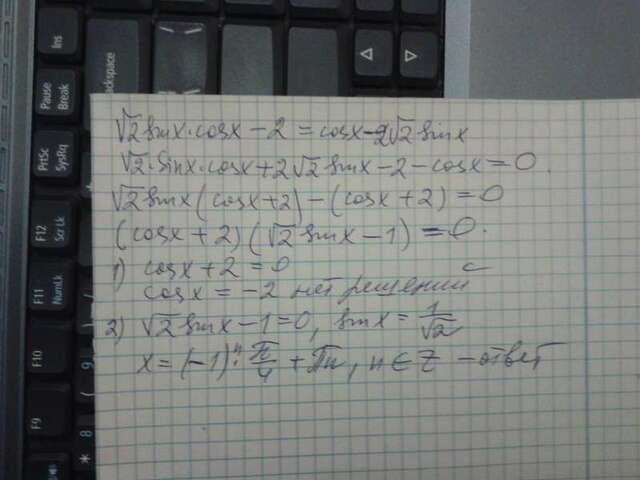 Ins
Pause
Break
PrtSc
SysRq
F12
Scr Lk
F11
NumLk
F10
F9
ckspace
9 (
8 *
√2 sinx·cosx − 2 = cosx − 2√2 sinx
√2·sinx·cosx + 2√2 sinx − 2 − cosx = 0.
√2 sinx (cosx + 2) − (cosx + 2) = 0
(cosx + 2)(√2 sinx − 1) = 0.
1) cosx + 2 = 0
cosx = −2 нет решений
2) √2 sinx − 1 = 0, sinx = 1/√2
x = (−1)ⁿ·π/4 + πn, n ∈ Z − ответ